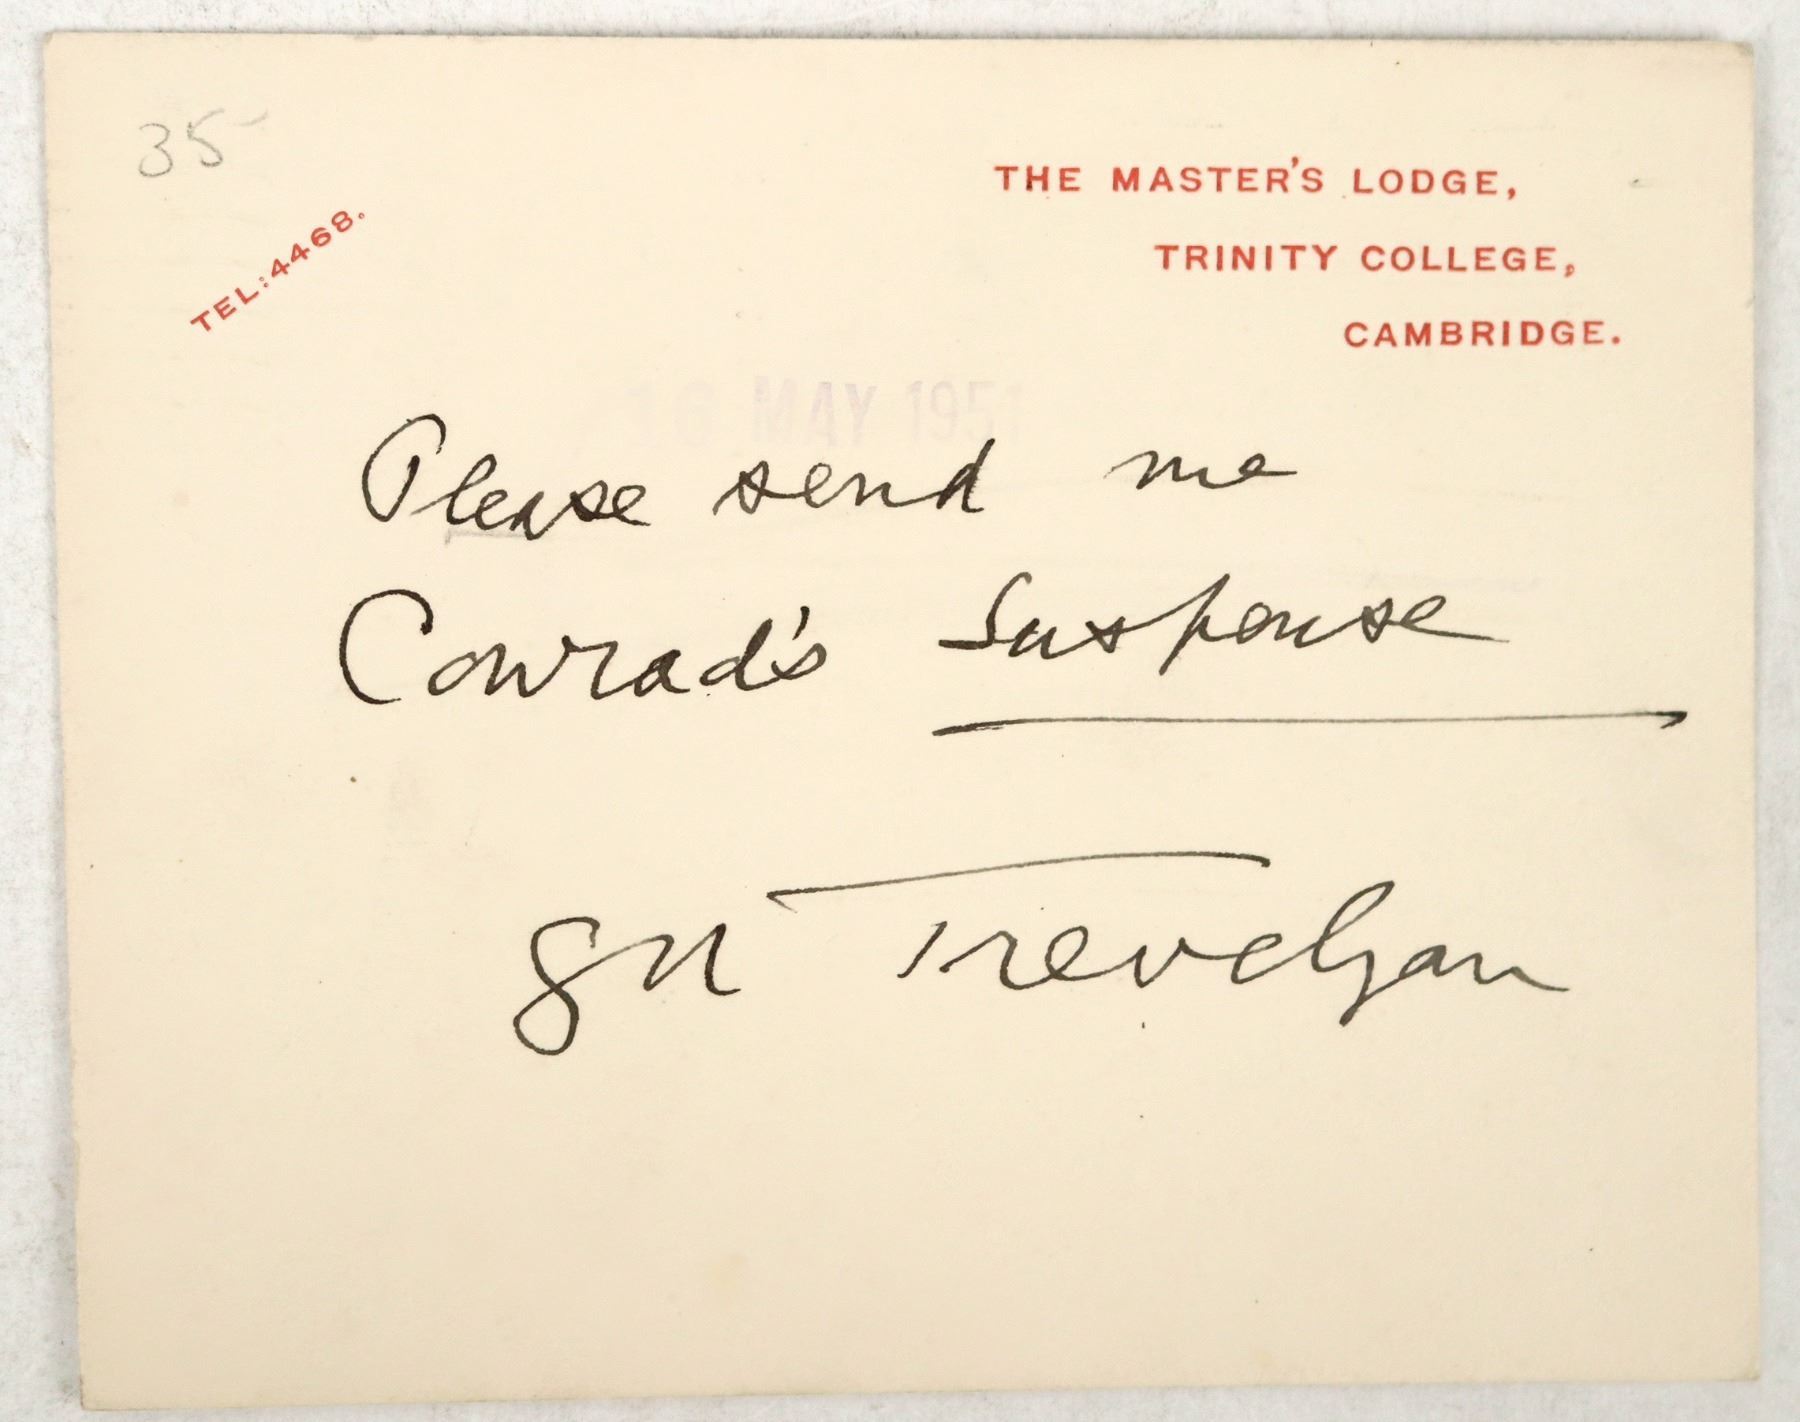 35
TEL:4468.
THE MASTER'S LODGE,
TRINITY COLLEGE,
CAMBRIDGE.
16 MAY 1951
Please send me
Conrad's Suspense
GM Trevelyan